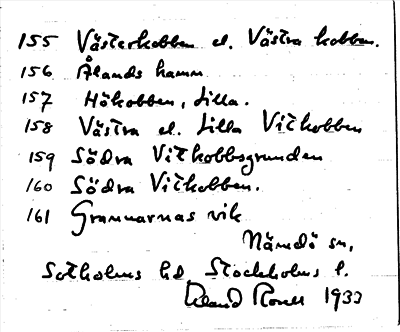 155 Västerkobben el. Västra kobben.
156 Ålands hamn
157 Hökobben, Lilla.
158 Västra el. Lilla Vitkobben
159 Södra Vitkobbsgrunden
160 Södra Vitkobben.
161 Grannarnas vik
Nämdö sn,
Sotholms hd Stockholms l.
1933